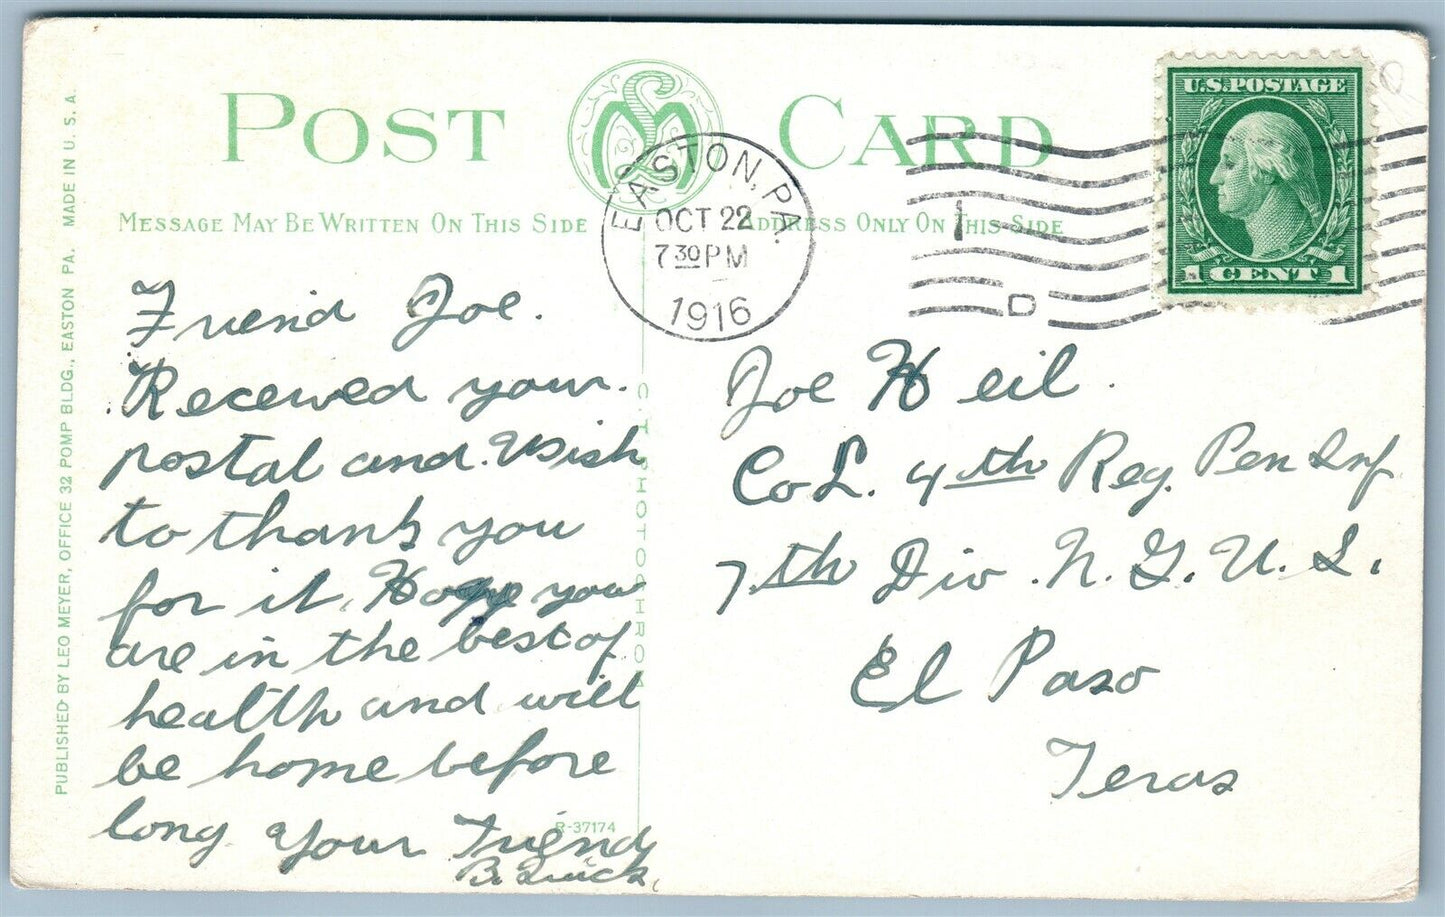 POST CARD
MESSAGE MAY BE WRITTEN ON THIS SIDE
ADDRESS ONLY ON THIS SIDE
U.S. POSTAGE
1 CENT 1
EASTON, PA.
OCT 22
7 30 PM
1916
1
D
PUBLISHED BY LEO MEYER, OFFICE 32 POMP BLDG., EASTON PA. MADE IN U. S. A.
C. T. PHOTOCHROM
Friend Joe.
Received your
postal and Wish
to thank you
for it. Hope you
are in the best of
health and will
be home before
long Your Friend
B. Quick.
R-37174
Joe Heil.
Co L. 4th Reg. Pen Inf
7th Div. N. G. U. S.
El Paso
Texas